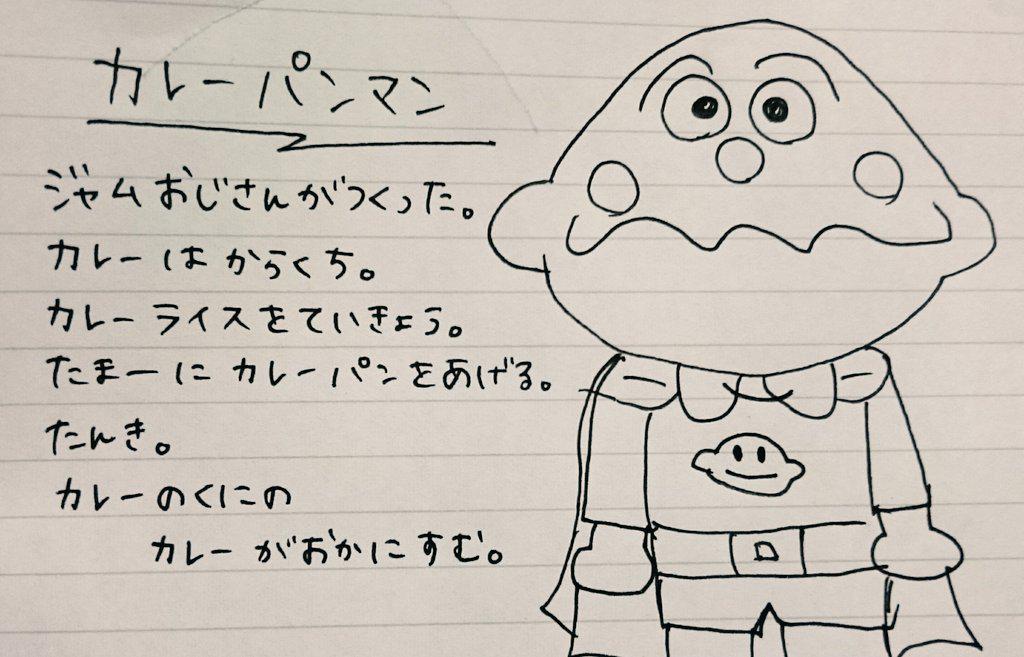 カレーパンマン
ジャムおじさんがつくった。
カレーはからくち。
カレーライスをていきょう。
たまーにカレーパンをあげる。
たんき。
カレーのくにの
カレーがおかにすむ。